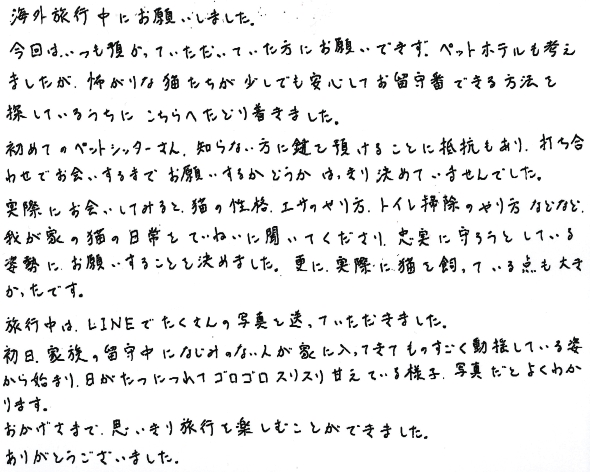 海外旅行中にお願いしました。
今回はいつも預かっていただいていた方にお願いできず、ペットホテルも考え
ましたが、怖がりな猫たちが少しでも安心してお留守番できる方法を
探しているうちに こちらへたどり着きました。
初めてのペットシッターさん、知らない方に鍵を預けることに抵抗もあり、打ち合
わせでお会いするまで お願いするかどうか はっきり決めていませんでした。
実際にお会いしてみると、猫の性格、エサのやり方、トイレ掃除のやり方 などなど、
我が家の猫の日常をていねいに聞いてくださり、忠実に守ろうとしている
姿勢に、お願いすることを決めました。更に、実際に猫を飼っている点も大き
かったです。
旅行中は、LINEでたくさんの写真を送っていただきました。
初日、家族の留守中になじみのない人が家に入ってきてものすごく動揺している姿
から始まり、日がたつにつれてゴロゴロスリスリ甘えている様子、写真だとよくわか
ります。
おかげさまで、思いきり旅行を楽しむことができました。
ありがとうございました。